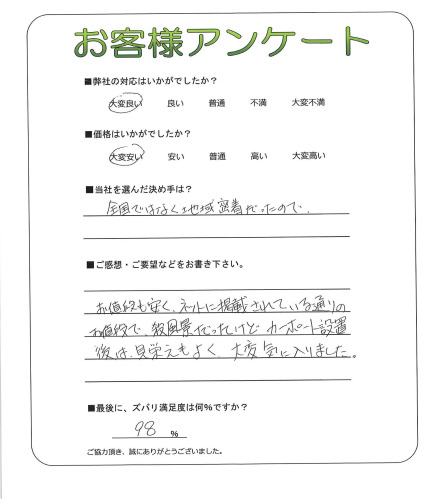 お客様アンケート
■弊社の対応はいかがでしたか？
大変良い 良い 普通 不満 大変不満
■価格はいかがでしたか？
大変安い 安い 普通 高い 大変高い
■当社を選んだ決め手は？
全国ではなく地域密着だったので、
■ご感想・ご要望などをお書き下さい。
お値段も安く、ネットに掲載されている通りの
お値段で、殺風景だったけど カーポート設置
後は、見栄えもよく、大変気に入りました。
■最後に、ズバリ満足度は何％ですか？
98 ％
ご協力頂き、誠にありがとうございました。